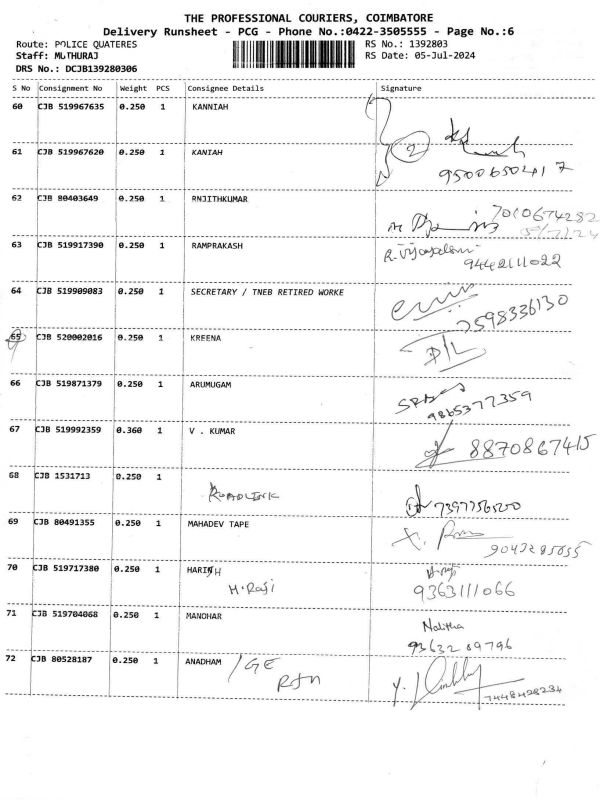 THE PROFESSIONAL COURIERS, COIMBATORE
Delivery Runsheet - PCG - Phone No.:0422-3505555 - Page No.:6
Route: POLICE QUATERES RS No.: 1392803
Staff: MUTHURAJ RS Date: 05-Jul-2024
DRS No.: DCJB139280306
S No Consignment No Weight PCS Consignee Details Signature
60 CJB 519967635 0.250 1 KANNIAH
61 CJB 519967620 0.250 1 KANIAH 2
9500650417
62 CJB 80403649 0.250 1 RNJITHKUMAR 7010674282
5/7/24
63 CJB 519917390 0.250 1 RAMPRAKASH R. Vijayalaxmi
9442111022
64 CJB 519909083 0.250 1 SECRETARY / TNEB RETIRED WORKE
7598336130
65 CJB 520002016 0.250 1 KREENA D/L
66 CJB 519871379 0.250 1 ARUMUGAM
9865377359
67 CJB 519992359 0.360 1 V . KUMAR 8870867415
68 CJB 1531713 0.250 1
ROADLINK 7397756500
69 CJB 80491355 0.250 1 MAHADEV TAPE
9043295055
70 CJB 519717380 0.250 1 HARISH
H. Raji 9363111066
71 CJB 519704068 0.250 1 MANOHAR Nalitha
93632 89796
72 CJB 80528187 0.250 1 ANADHAM / GE
7448428234